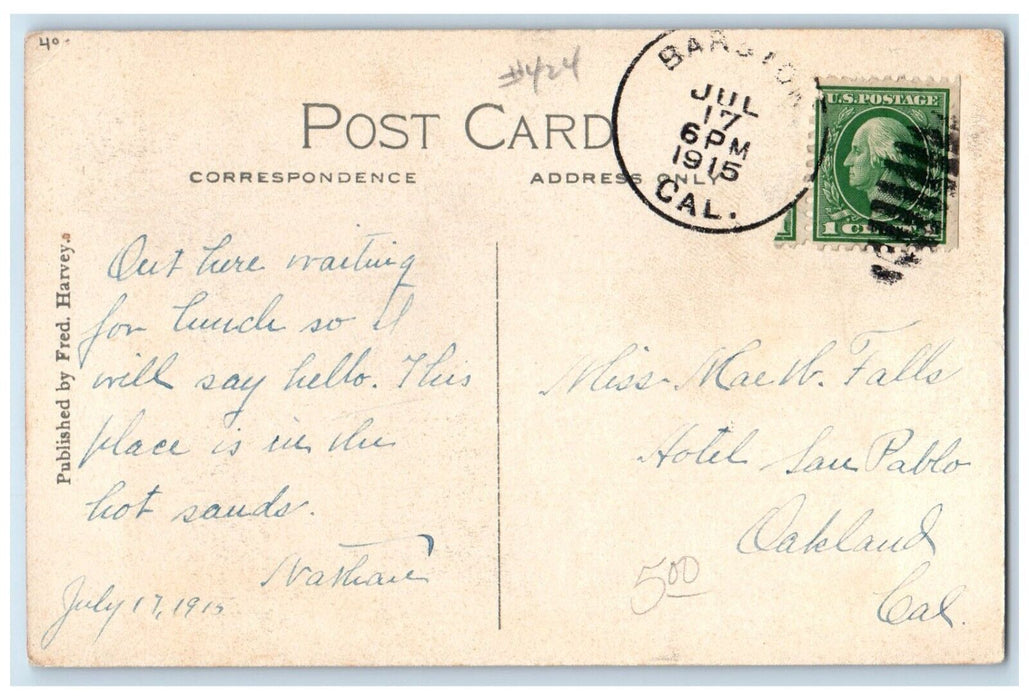 40
#424
BARSTOW
JUL
17
6 PM
1915
CAL.
U.S. POSTAGE
1 CE
POST CARD
CORRESPONDENCE
ADDRESS ONLY
Published by Fred. Harvey.
Out here waiting
for lunch so I
will say hello. This
place is in the
hot sands.
Nathan
July 17, 1915
Miss Mae W. Falls
Hotel San Pablo
Oakland
Cal.
5.00